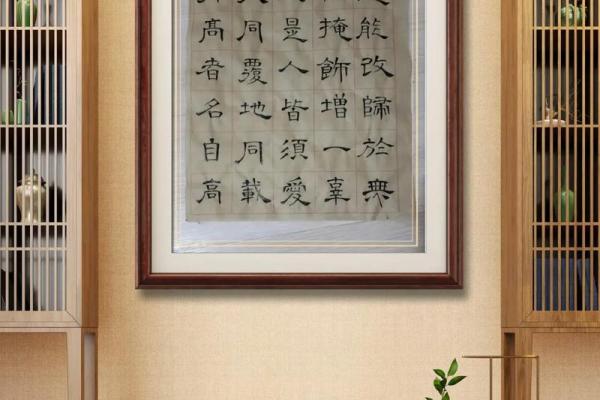 能改歸於無
掩飾增一辜
是人皆須愛
同覆地同載
髙者名自高